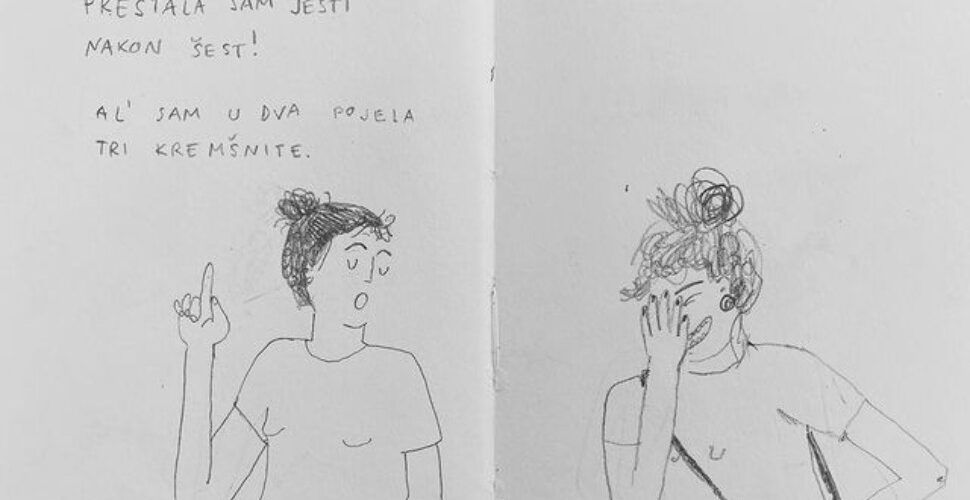 PRESTALA SAM JESTI
NAKON ŠEST!
AL' SAM U DVA POJELA
TRI KREMŠNITE.